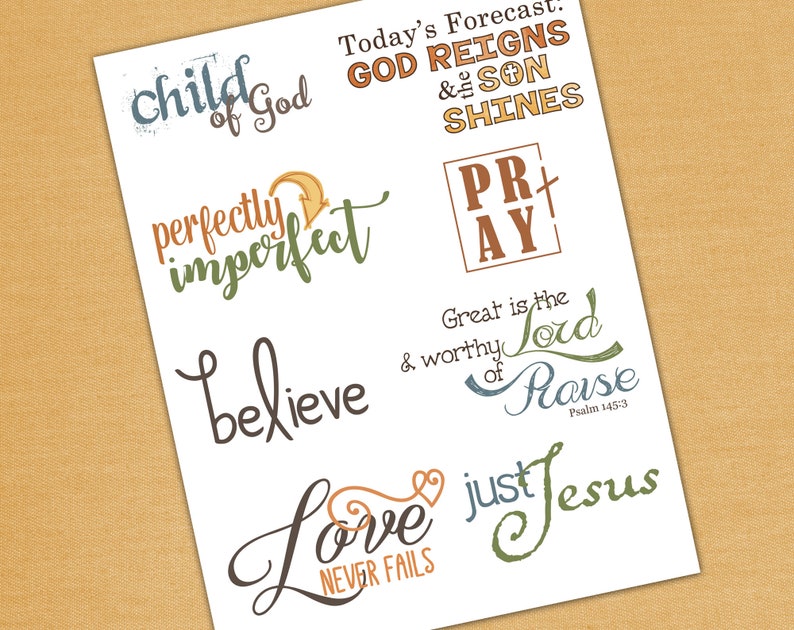 child
of God
Today's Forecast:
GOD REIGNS
& the SON
SHINES
perfectly
imperfect
PR
AY
believe
Great is the
Lord
& worthy
of
Praise
Psalm 145:3
Love
NEVER FAILS
just Jesus